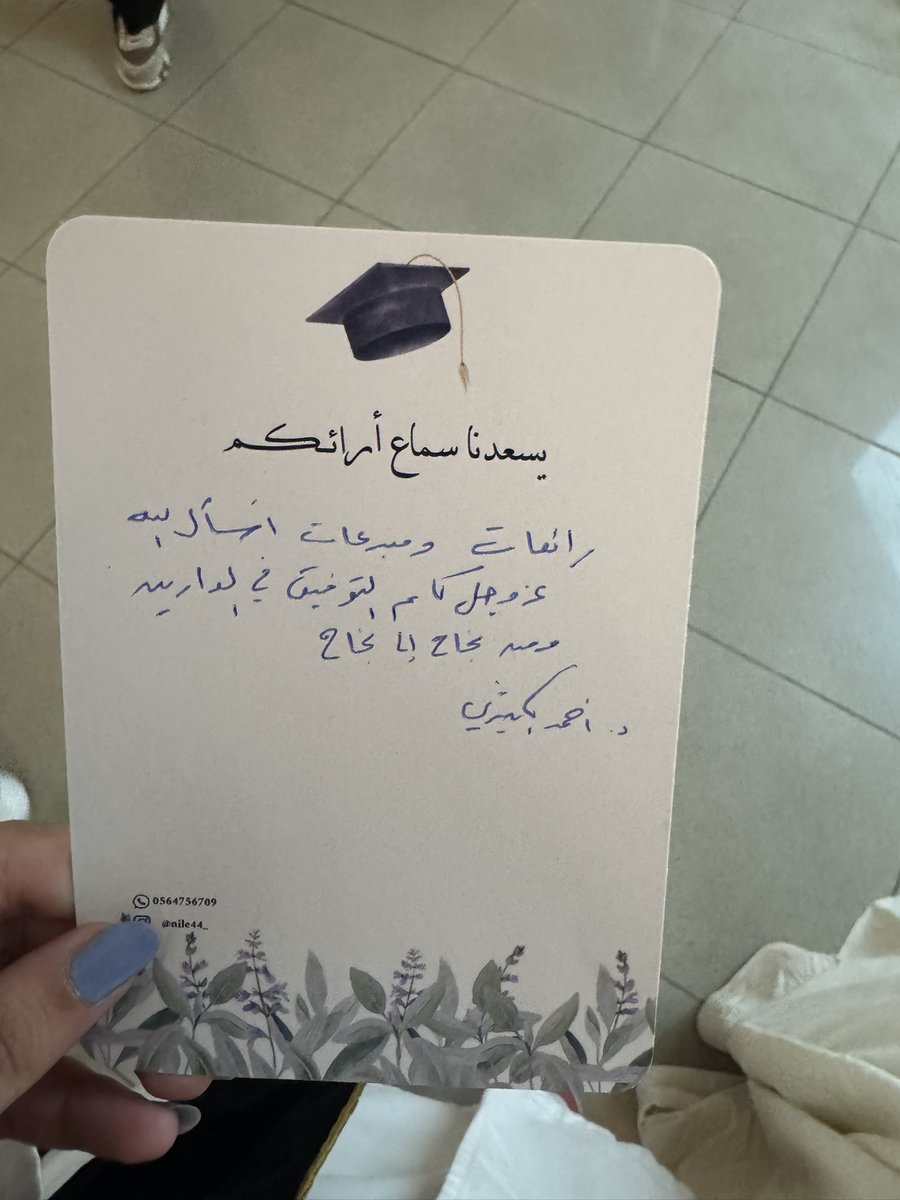 يسعدنا سماع أرائكم
رائعات ومبدعات اسأل الله
عز وجل لكم التوفيق في الدارين
ومن نجاح إلى نجاح
د. احمد
0564756709
@nile44_